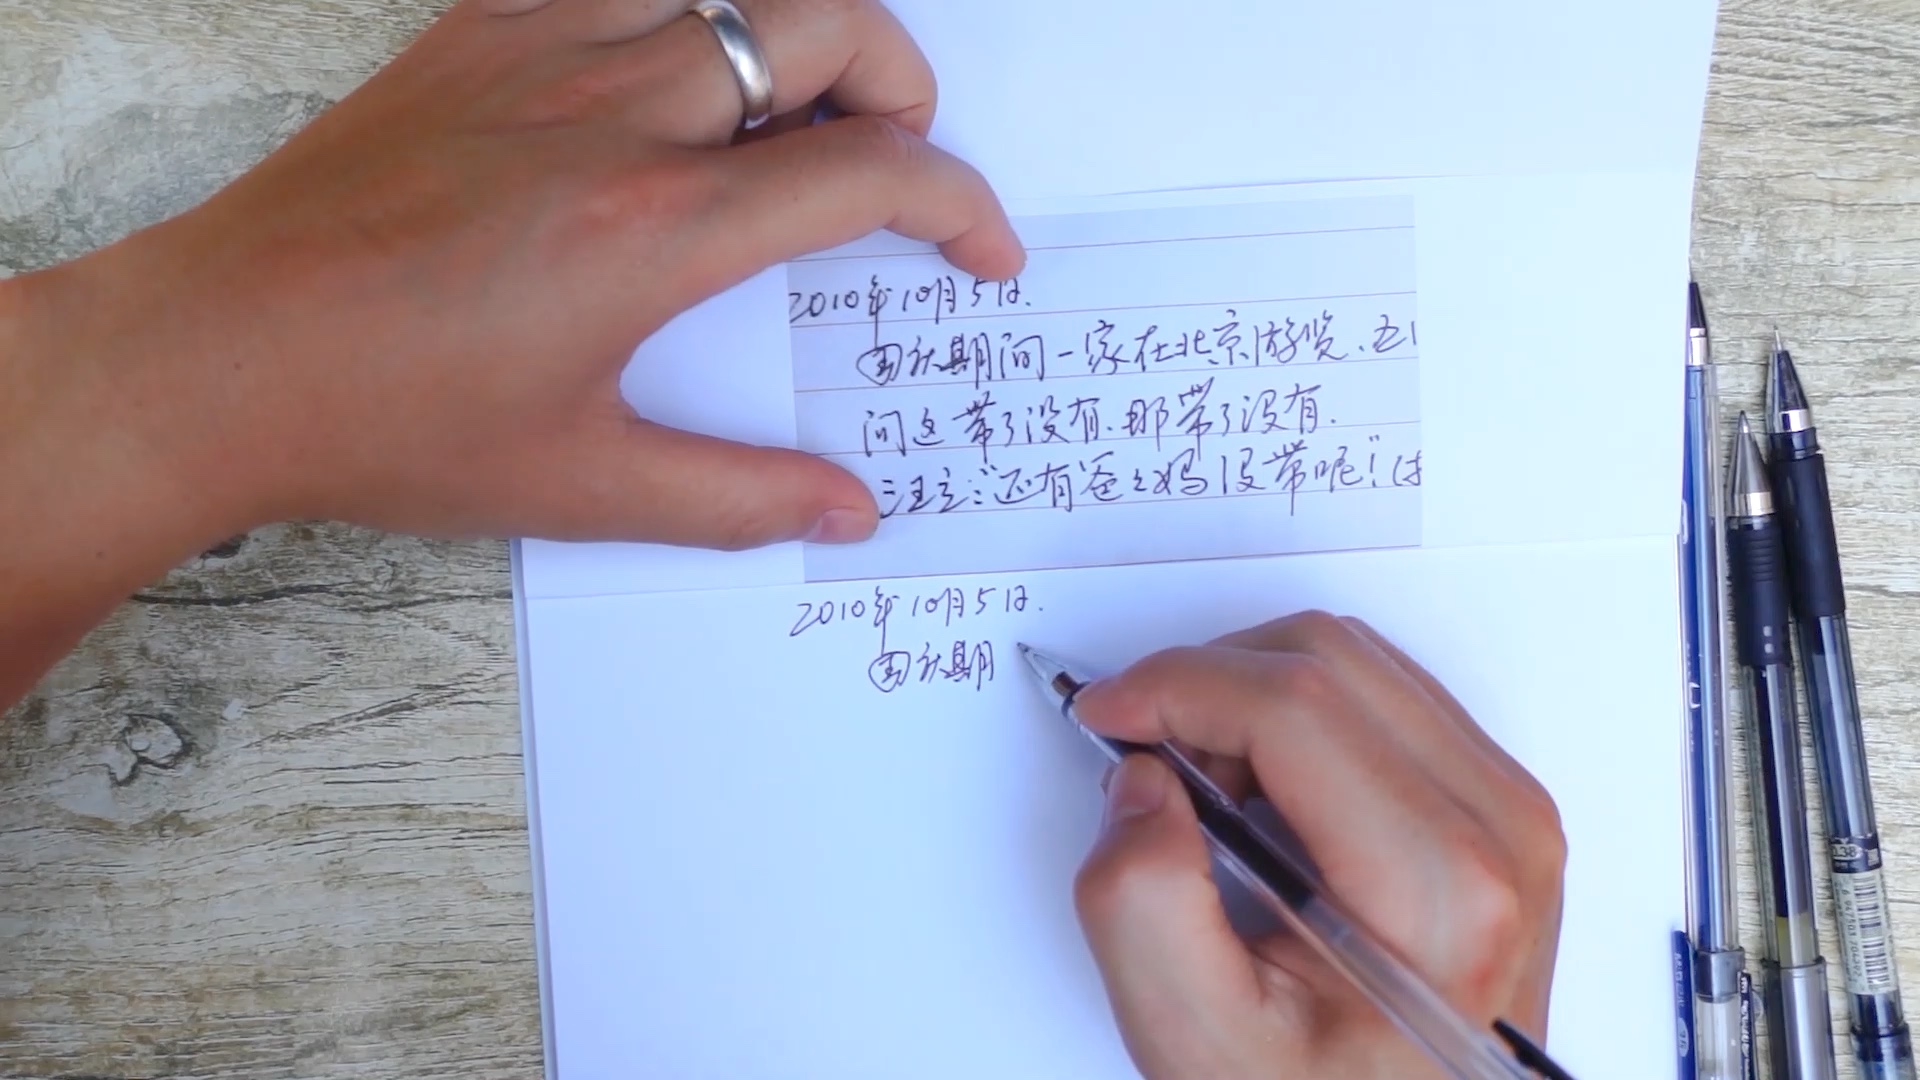 2010年10月5日.
国庆期间一家在北京游览.
问这带了没有.那带了没有.
“还有爸々妈没带呢!”
2010年10月5日.
国庆期